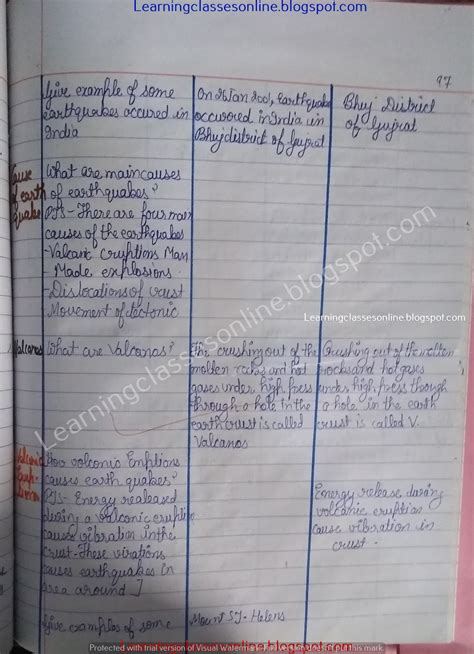 Learningclassesonline.blogspot.com
97
Give example of some
earthquakes accured in
India
On 26 Jan 2001, Earthquake
occurored in India in
Bhuj district of Gujrat
Bhuj District
of Gujrat
Cause
of earth
quake
What are main causes
of earthquakes?
PJS - There are four main
causes of the earthquakes
- Valcanic Eruptions Man
- Made explosions.
- Dislocations of crust
Movement of tectonic
Learningclassesonline.blogspot.com
Learningclassesonline.blogspot.com
Valcanos
What are Valcanos?
The crushing out of the
molten rocks and hot
gases under high press
through a hole in the
earth crust is called
Valcanos
Crushing out of the molten
rocks and hot gases
under high press though
a hole in the earth
crust is called V.
Learningclassesonline.blogspot.com
Valconic
How volconic Emptions
causes earth quakes?
PJS - Energy realeased
during a valconic eruption
cause vibration in the
crust. These virations
causes earthquakes in
area around ]
Energy release during
volcanic eruption
cause vibration in
crust.
Give examples of some
Mount ST- Helens
Learningclassesonline.blogspot.com
Protected with trial version of Visual Watermark. Full version doesn't put this mark.